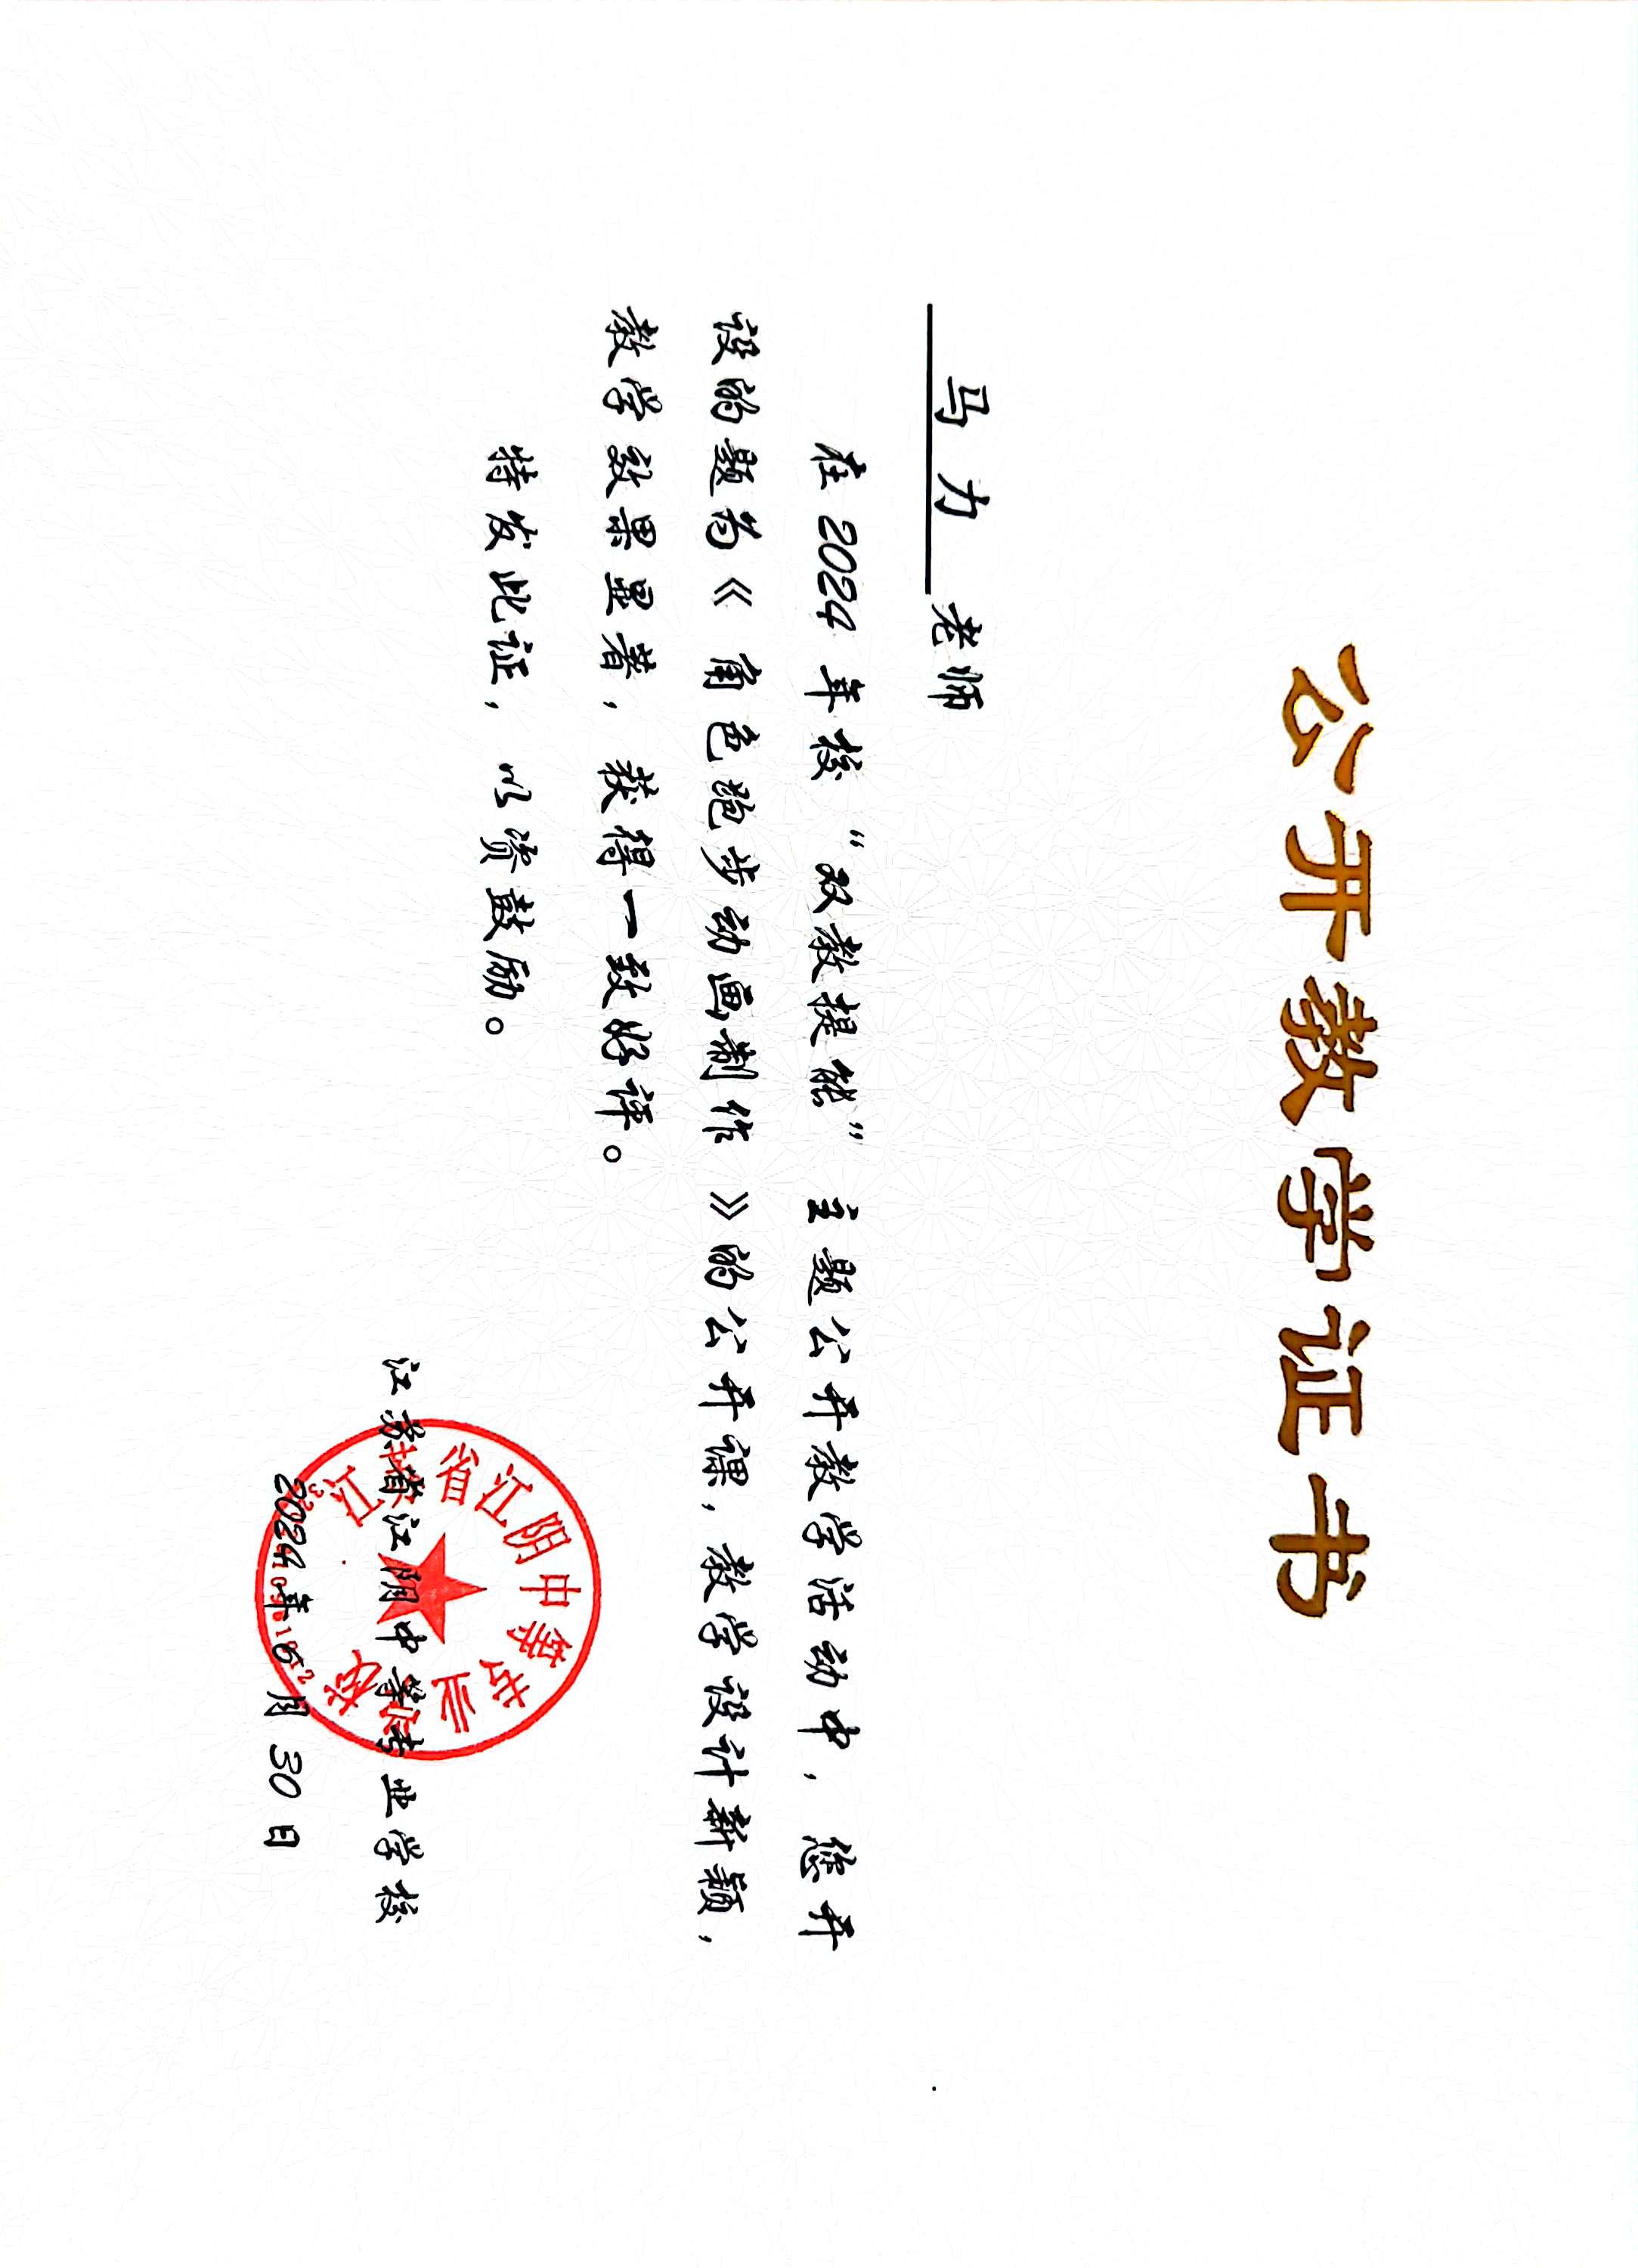 公开教学证书
马力 老师
在 2024 年校 “双教提能” 主题公开教学活动中，您开
设的题为《 角色跑步动画制作 》的公开课，教学设计新颖，
教学效果显著，获得一致好评。
特发此证，以资鼓励。
江苏省江阴中等专业学校
2024年6月30日
江苏省江阴中等专业学校